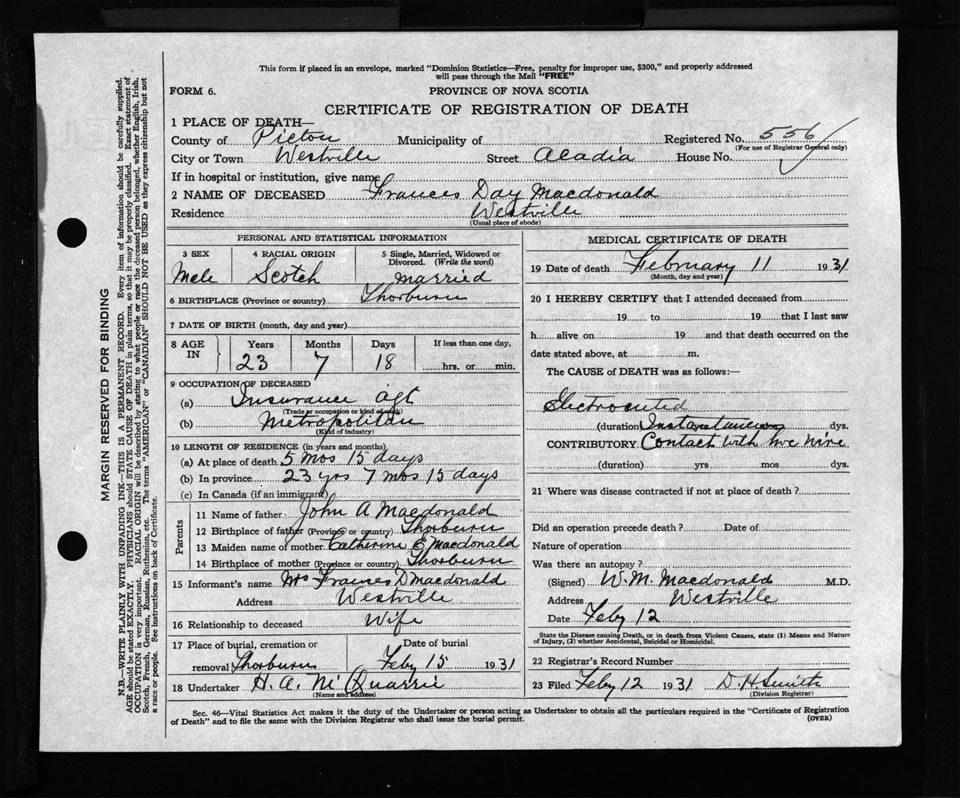 This form if placed in an envelope, marked "Dominion Statistics—Free, penalty for improper use, $300," and properly addressed
will pass through the Mail "FREE"
FORM 6.
PROVINCE OF NOVA SCOTIA
CERTIFICATE OF REGISTRATION OF DEATH
1 PLACE OF DEATH—
County of Pictou Municipality of Registered No. 556
(For use of Registrar General only)
City or Town Westville Street Acadia House No.
If in hospital or institution, give name
2 NAME OF DECEASED Frances Day Macdonald
Residence Westville
(Usual place of abode)
PERSONAL AND STATISTICAL INFORMATION
3 SEX 4 RACIAL ORIGIN 5 Single, Married, Widowed or
Divorced. (Write the word)
Male Scotch married
6 BIRTHPLACE (Province or country) Thorburn
7 DATE OF BIRTH (month, day and year)
8 AGE IN Years Months Days If less than one day,
23 7 18 hrs. or min.
9 OCCUPATION OF DECEASED
(a) Insurance agt
(Trade or occupation or kind of work)
(b) Metropolitan
(Kind of industry)
10 LENGTH OF RESIDENCE (in years and months)
(a) At place of death 5 mos 15 days
(b) In province 23 yrs 7 mos 15 days
(c) In Canada (if an immigrant)
Parents
11 Name of father John A Macdonald
12 Birthplace of father (Province or country) Thorburn
13 Maiden name of mother Catherine E Macdonald
14 Birthplace of mother (Province or country) Thorburn
15 Informant's name Mrs Frances D Macdonald
Address Westville
16 Relationship to deceased Wife
17 Place of burial, cremation or Date of burial
removal Thorburn Feby 15 1931
18 Undertaker H. A. McQuarrie
(Name and address)
MEDICAL CERTIFICATE OF DEATH
19 Date of death February 11 1931
(Month, day and year)
20 I HEREBY CERTIFY that I attended deceased from
19 to 19 that I last saw
h alive on 19 and that death occurred on the
date stated above, at m.
The CAUSE of DEATH was as follows:—
Electrocuted
(duration) Instantaneous dys.
CONTRIBUTORY Contact with live wire
(duration) yrs mos dys.
21 Where was disease contracted if not at place of death?
Did an operation precede death? Date of
Nature of operation
Was there an autopsy?
(Signed) W. M. Macdonald M.D.
Address Westville
Date Feby 12
State the Disease causing Death, or in death from Violent Causes, state (1) Means and Nature
of Injury, (2) whether Accidental, Suicidal or Homicidal.
22 Registrar's Record Number
23 Filed Feby 12 1931 D. H. Smith
(Division Registrar)
Sec. 46—Vital Statistics Act makes it the duty of the Undertaker or person acting as Undertaker to obtain all the particulars required in the "Certificate of Registration
of Death" and to file the same with the Division Registrar who shall issue the burial permit.
(OVER)
MARGIN RESERVED FOR BINDING
N.B.—WRITE PLAINLY WITH UNFADING INK—THIS IS A PERMANENT RECORD. Every item of information should be carefully supplied.
AGE should be stated EXACTLY. PHYSICIANS should STATE CAUSE OF DEATH in plain terms, so that it may be properly classified. Exact statement of
OCCUPATION is very important. RACIAL ORIGIN will be described by stating to what people or race the deceased person belonged, whether English, Irish,
Scotch, French, German, Russian, Ruthenian, etc. The terms "AMERICAN" or "CANADIAN" SHOULD NOT BE USED as they express citizenship but not
a race or people. See instructions on back of Certificate.